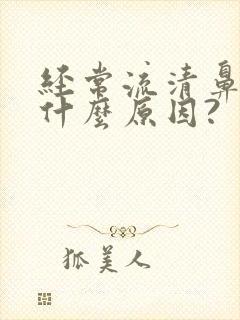 经常流清鼻
什麼原因?
狐美人